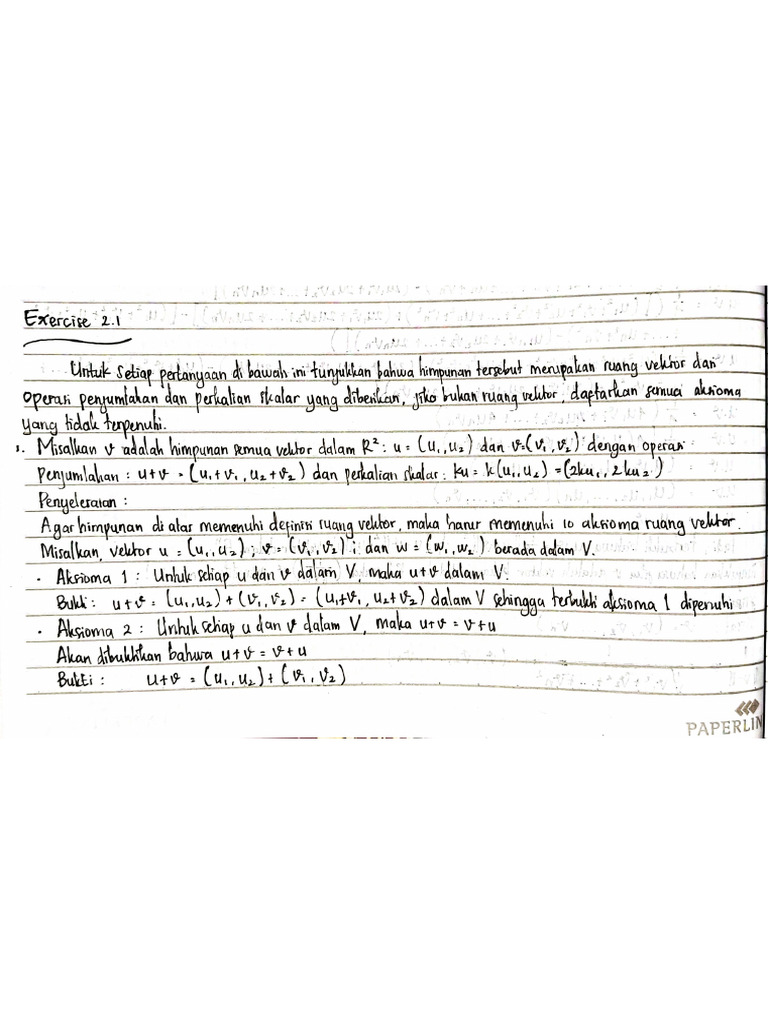 Exercise 2.1
Untuk setiap pertanyaan di bawah ini tunjukkan bahwa himpunan tersebut merupakan ruang vektor dari
operasi penjumlahan dan perkalian skalar yang diberikan, jika bukan ruang vektor, daftarkan semua aksioma
yang tidak terpenuhi.
1. Misalkan v adalah himpunan semua vektor dalam R²: u = (u₁,u₂) dan v=(v₁,v₂) dengan operasi
Penjumlahan : u+v = (u₁+v₁, u₂+v₂) dan perkalian skalar : ku = k(u₁,u₂) = (2ku₁, 2ku₂)
Penyelesaian :
Agar himpunan di atas memenuhi definisi ruang vektor, maka harus memenuhi 10 aksioma ruang vektor.
Misalkan, vektor u = (u₁,u₂) ; v = (v₁,v₂) ; dan w = (w₁,w₂) berada dalam V.
• Aksioma 1 : Untuk setiap u dan v dalam V maka u+v dalam V.
Bukti : u+v = (u₁,u₂) + (v₁,v₂) = (u₁+v₁, u₂+v₂) dalam V sehingga terbukti aksioma 1 dipenuhi
• Aksioma 2 : Untuk setiap u dan v dalam V, maka u+v = v+u
Akan dibuktikan bahwa u+v = v+u
Bukti : u+v = (u₁,u₂) + (v₁,v₂)
PAPERLIN